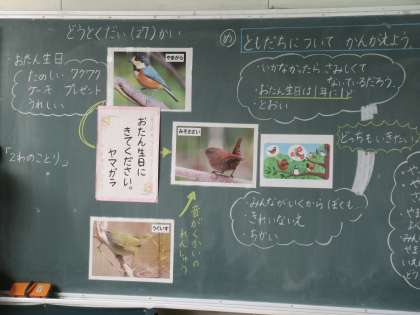 どうとくだい(27)かい
・おたん生日
たのしい ワクワク
ケーキ プレゼント
うれしい
「2わのことり」
やまがら
おたん生日に
きてください。
ヤマガラ
みそさざい
うぐいす
音がくかいの
れんしゅう
め ともだちについて かんがえよう
・いかなかったら さみしくて
ないているだろう。
・おたん生日は1年に1ど
・とおい
どっちもいきたい。
・みんながいくからぼくも
・きれいないえ
・ちかい